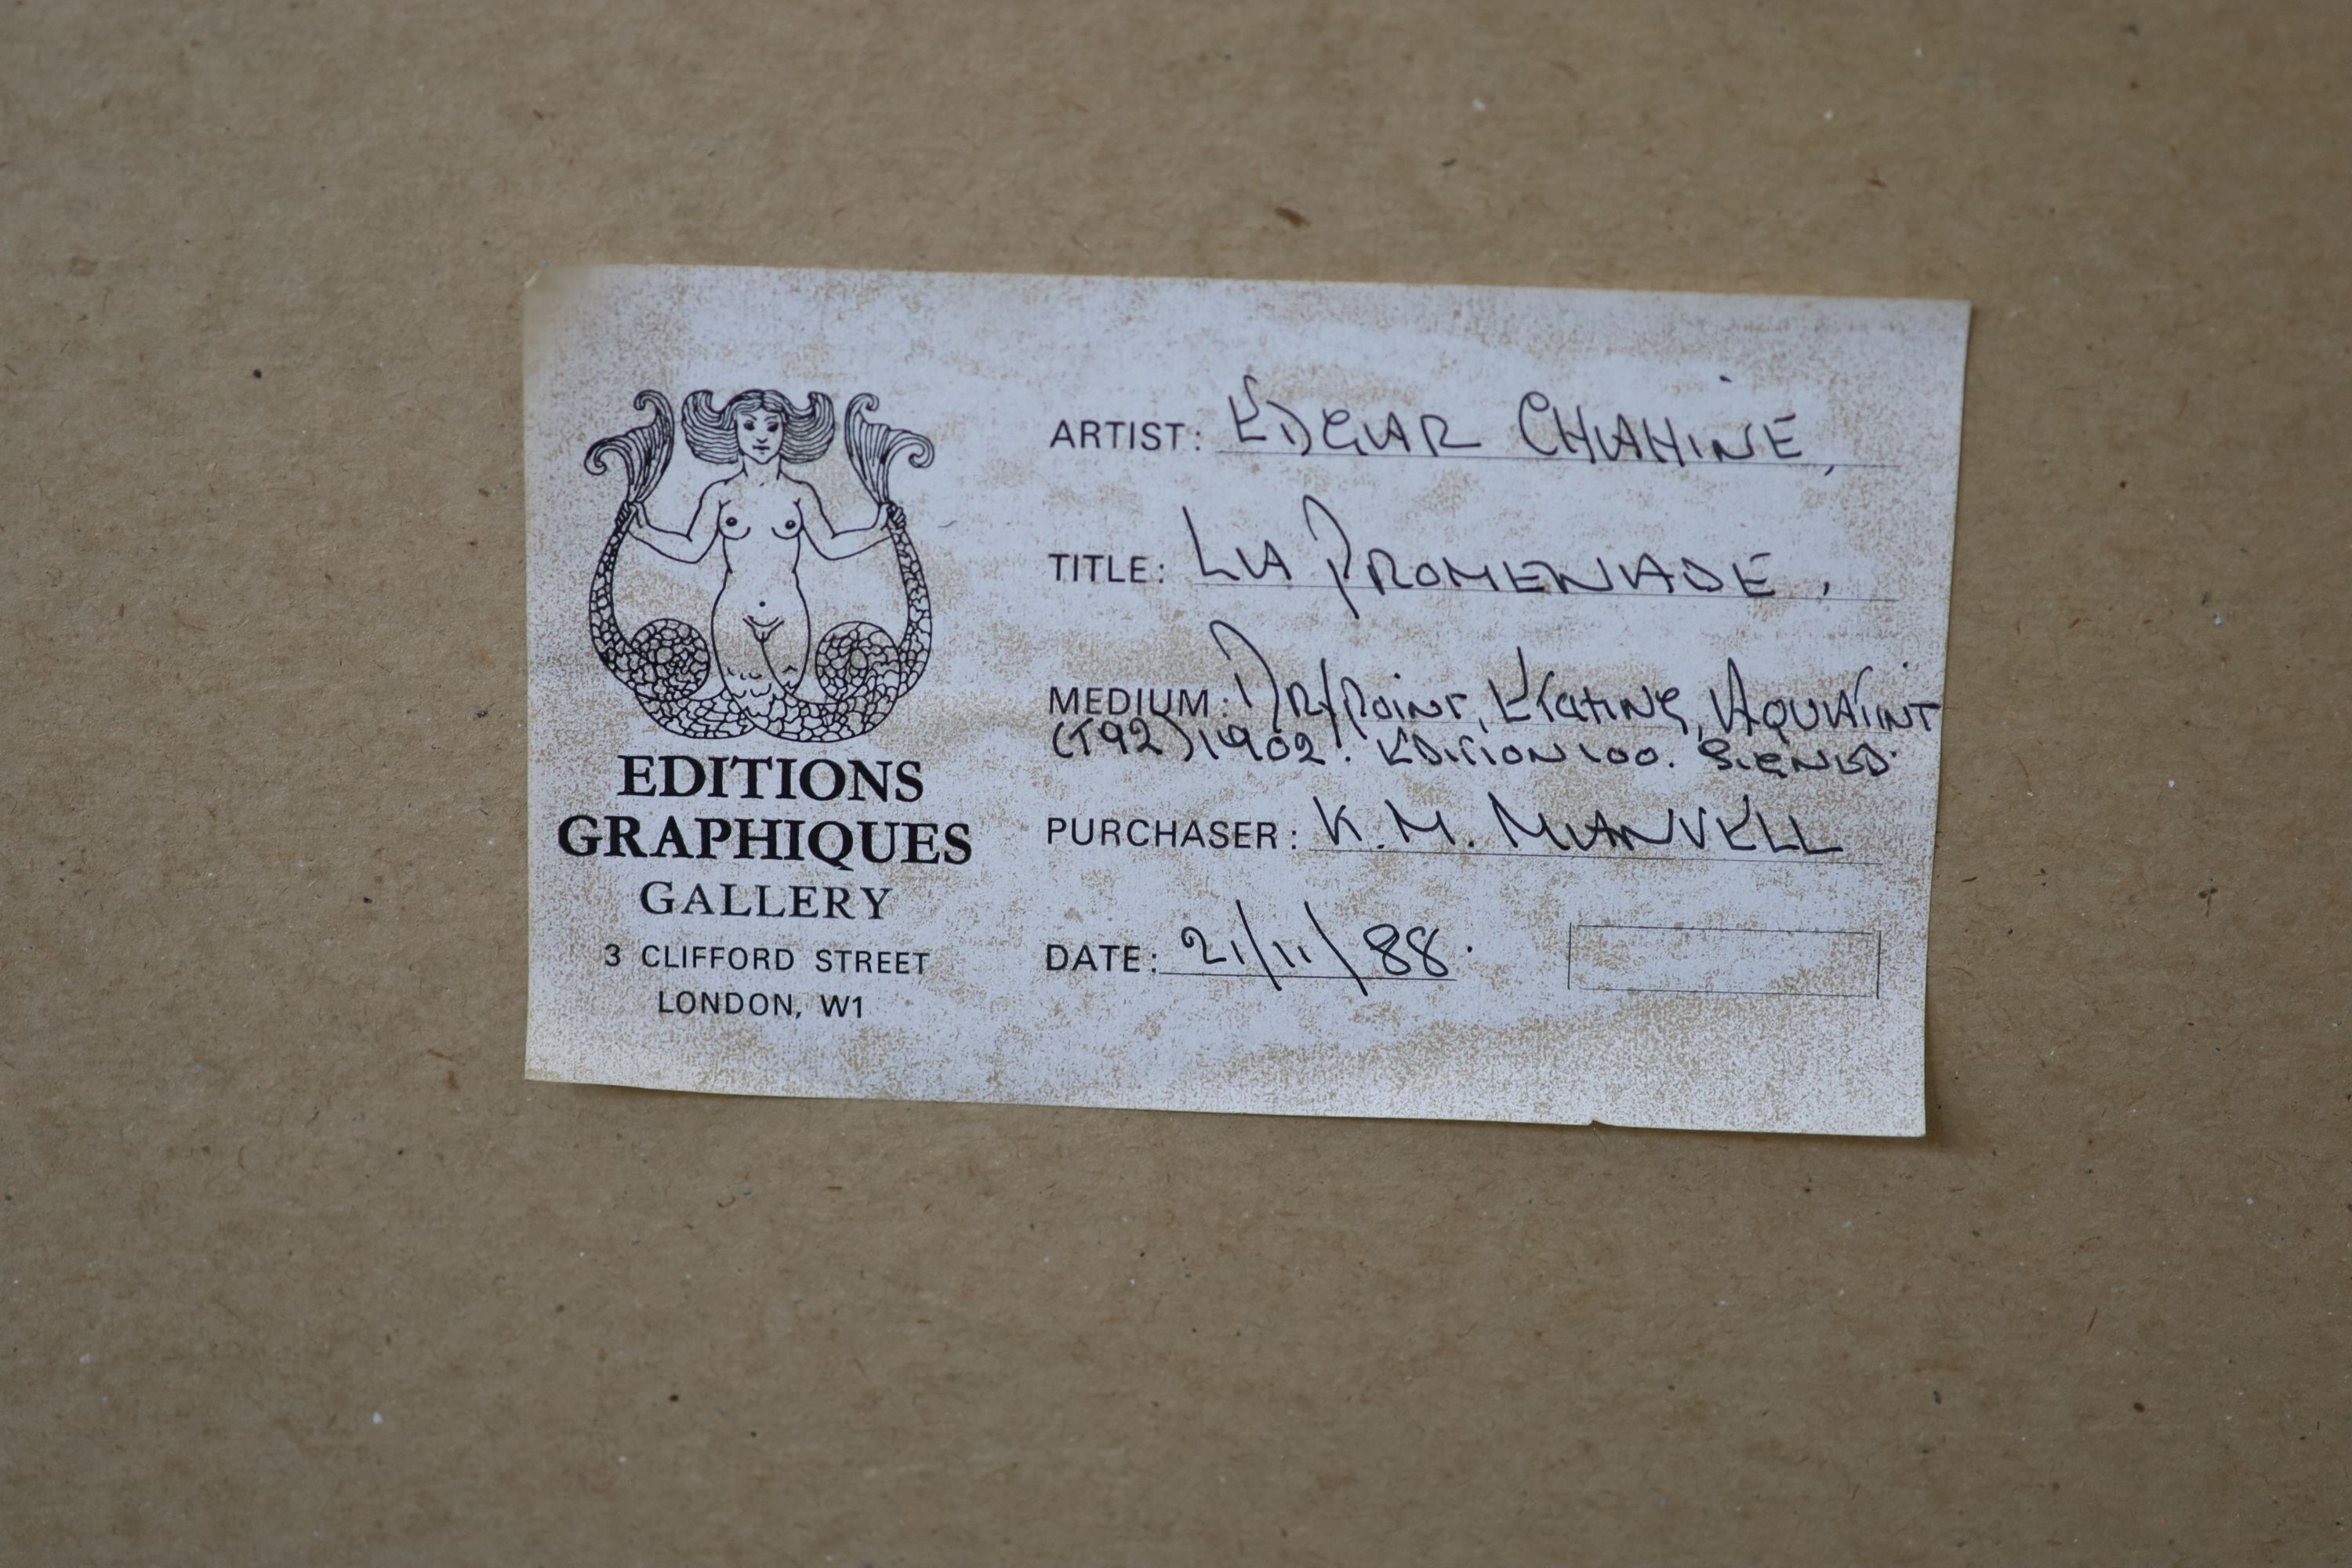 EDITIONS
GRAPHIQUES
GALLERY
3 CLIFFORD STREET
LONDON, W1
ARTIST: EDGAR CHAHINE,
TITLE: LA PROMENADE.
MEDIUM: DRYPOINT, ETCHING, AQUATINT
(T92) 1902. EDITION 100. SIGNED.
PURCHASER: K. M. MANVELL
DATE: 21/11/88.